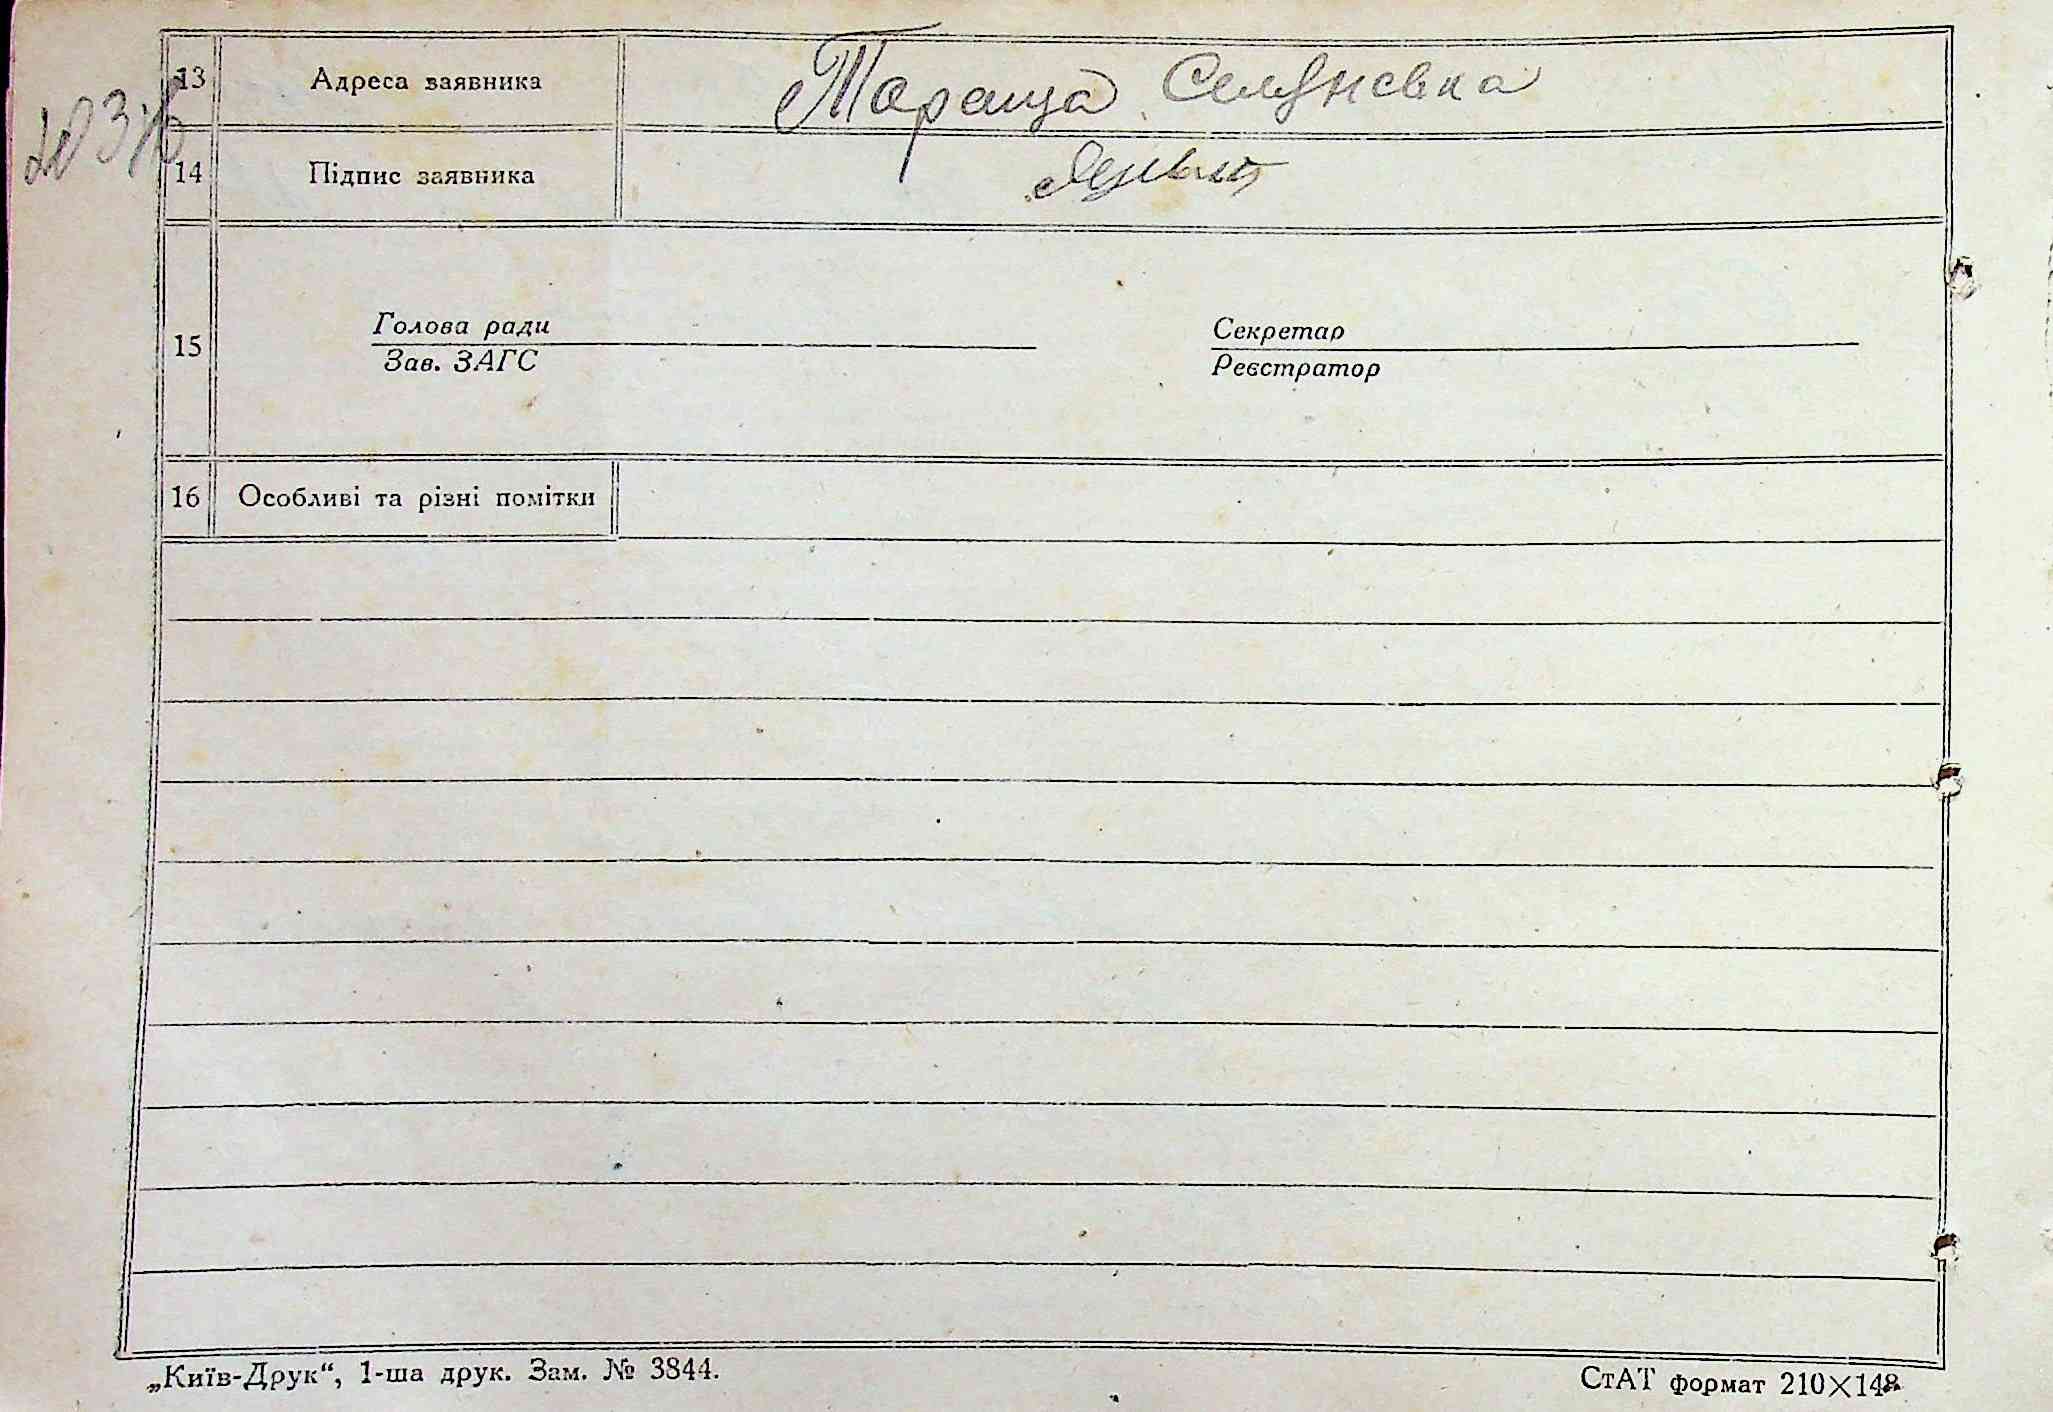 13 Адреса заявника Тараща
14 Підпис заявника
15 Голова ради Секретар
Зав. ЗАГС Реєстратор
16 Особливі та різні помітки
„Київ-Друк“, 1-ша друк. Зам. № 3844. СтАТ формат 210×148